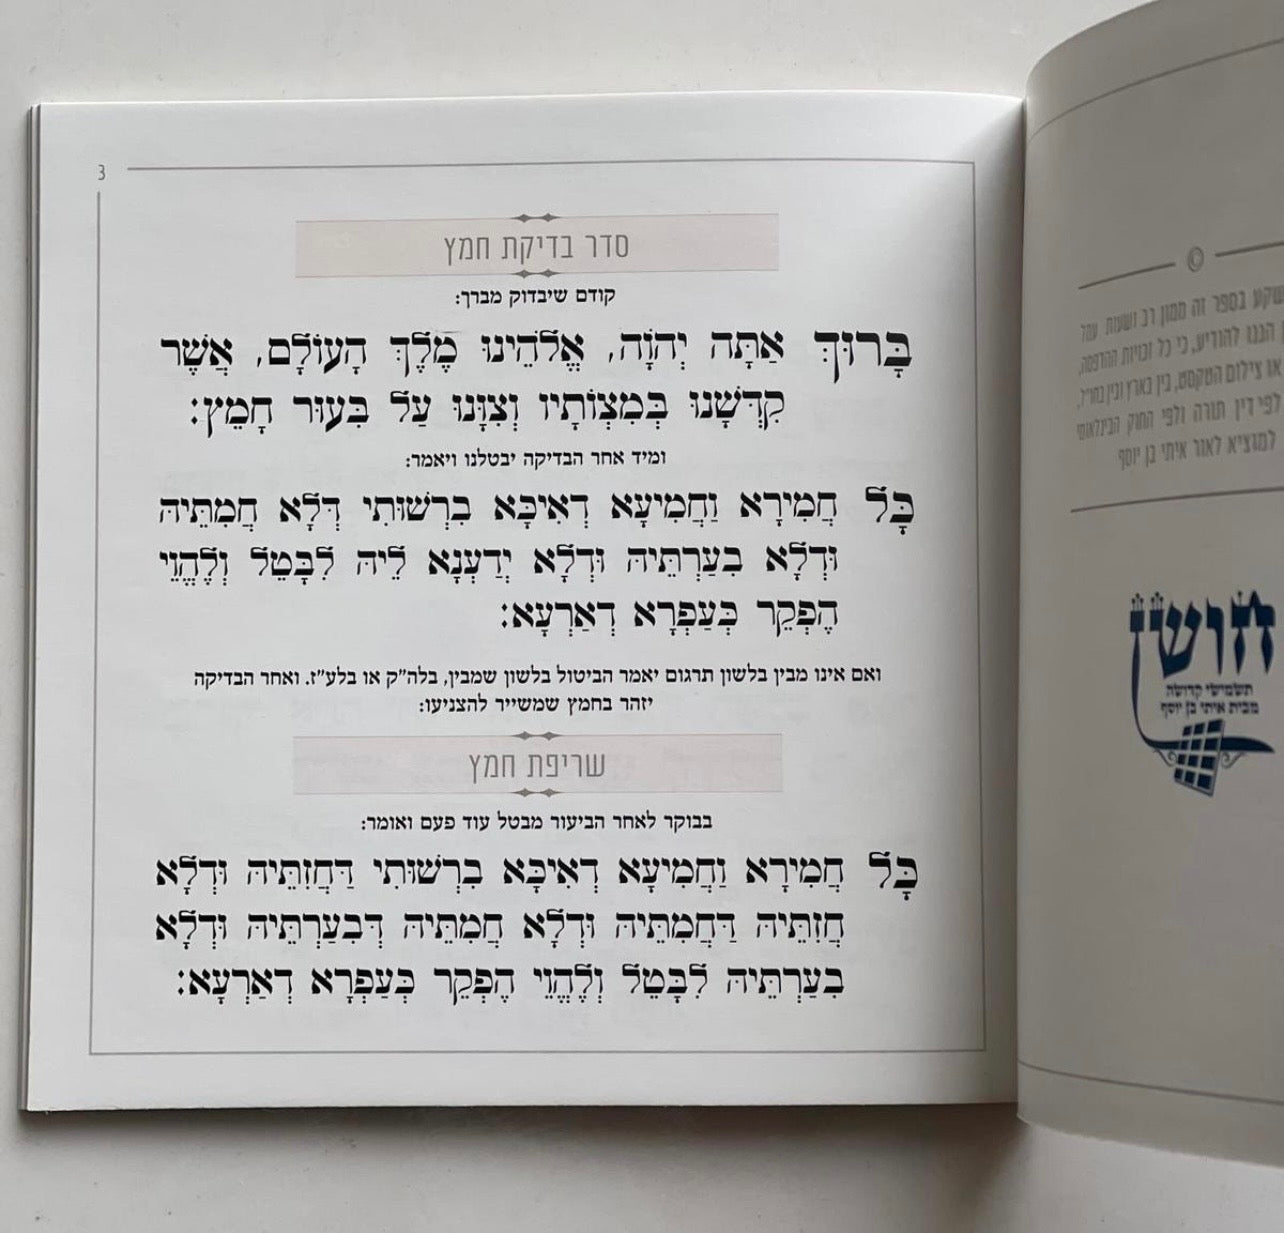 3
סדר בדיקת חמץ
קודם שיבדוק מברך:
בָּרוּךְ אַתָּה יְהֹוָה, אֱלֹהֵינוּ מֶלֶךְ הָעוֹלָם, אֲשֶׁר
קִדְּשָׁנוּ בְּמִצְוֹתָיו וְצִוָּנוּ עַל בִּעוּר חָמֵץ:
ומיד אחר הבדיקה יבטלנו ויאמר:
כָּל חֲמִירָא וַחֲמִיעָא דְאִיכָּא בִרְשׁוּתִי דְּלָא חֲמִתֵּיהּ
וּדְלָא בִעַרְתֵּיהּ וּדְלָא יְדַעְנָא לֵיהּ לִבָּטֵל וְלֶהֱוֵי
הֶפְקֵר כְּעַפְרָא דְאַרְעָא:
ואם אינו מבין בלשון תרגום יאמר הביטול בלשון שמבין, בלה״ק או בלע״ז. ואחר הבדיקה
יזהר בחמץ שמשייר להצניעו:
שריפת חמץ
בבוקר לאחר הביעור מבטל עוד פעם ואומר:
כָּל חֲמִירָא וַחֲמִיעָא דְאִיכָּא בִרְשׁוּתִי דַּחֲזִתֵּיהּ וּדְלָא
חֲזִתֵּיהּ דַּחֲמִתֵּיהּ וּדְלָא חֲמִתֵּיהּ דְּבִעַרְתֵּיהּ וּדְלָא
בִעַרְתֵּיהּ לִבָּטֵל וְלֶהֱוֵי הֶפְקֵר כְּעַפְרָא דְאַרְעָא:
©
בספר זה ממון רב ושעות עמל
הננו להודיע, כי כל זכויות ההדפסה,
או צילום הטקסט, בין בארץ ובין בחו״ל,
לפי דין תורה ולפי החוק הבינלאומי
למוציא לאור איתי בן יוסף
חושן
תשמישי קדושה
מבית איתי בן יוסף